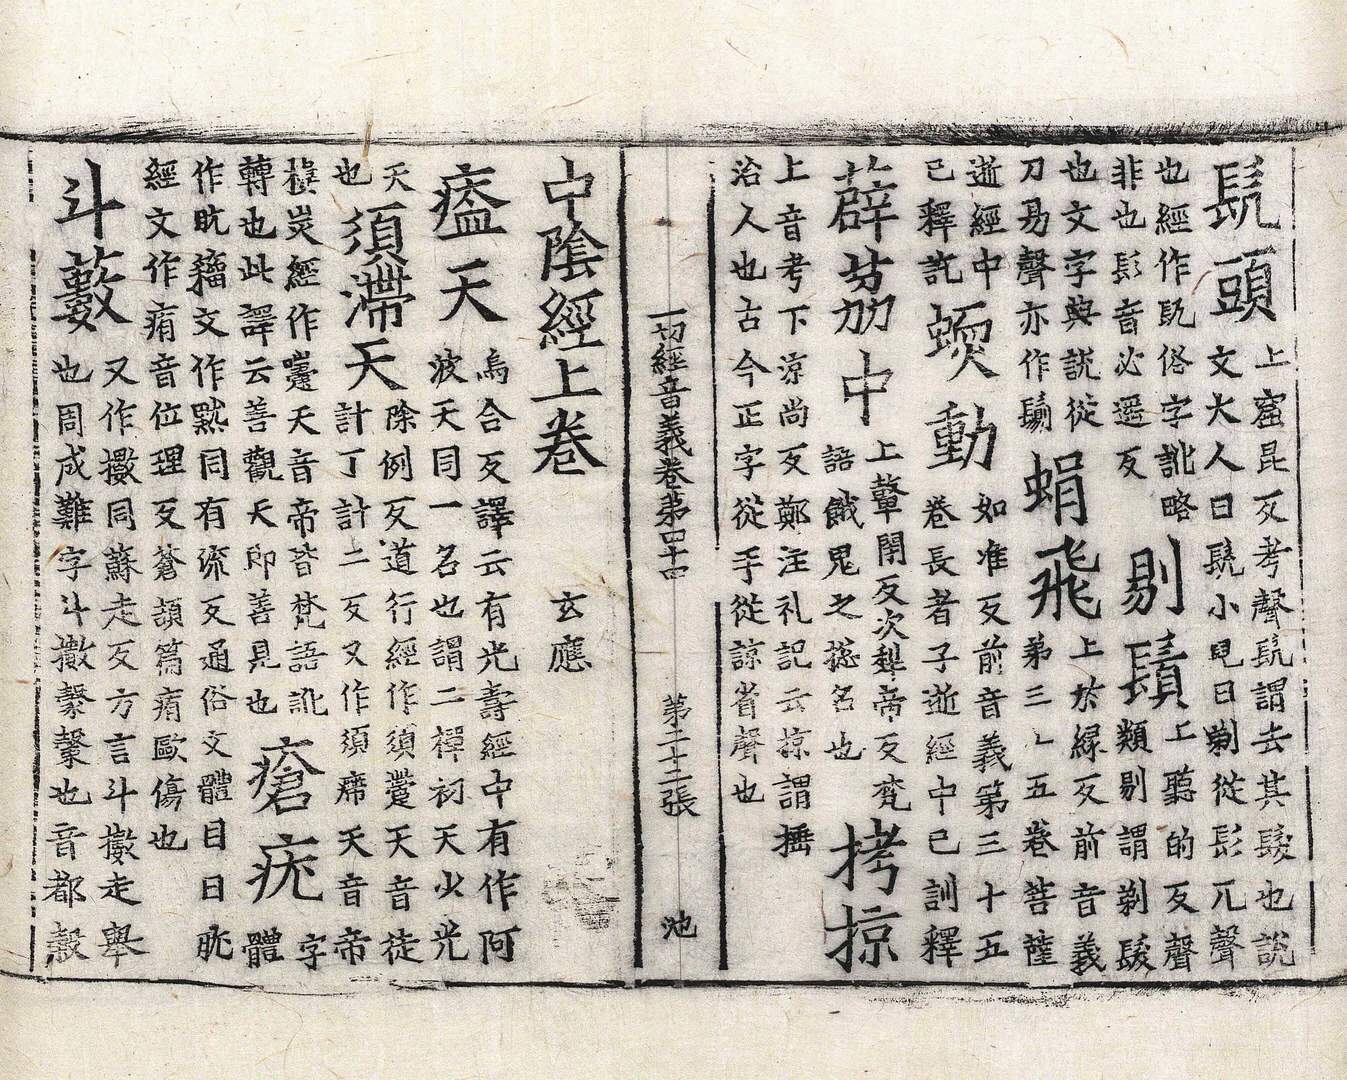 髨頭上窟昆反考聲髨謂去其髮也說
文大人曰髨小兒曰剃從髟兀聲
也經作髠俗字訛略
非也髟音必遥反
剔鬚上聽的反聲
類剔謂剃髮
也文字典說從
刀易聲亦作鬄
蜎飛上於緣反前音義
弟三十五卷菩薩
逝經中
已釋訖
蝡動如准反前音義第三十五
卷長者子逝經中已訓釋
薜茘中上鞞閇反次犁帝反梵
語餓鬼之揔名也
拷掠
上音考下涼尚反鄭注礼記云掠謂捶
治人也古今正字從手從諒省聲也
一切經音義卷第四十四 第二十二張 池
中陰經上卷 玄應
㿺天烏合反譯云有光壽經中有作阿
波天同一名也謂二禪初天少光
天
也
須滯天除例反道行經作須䠠天音徒
計丁計二反又作須㿃天音帝
樓炭經作䠠天音帝皆梵語訛
轉也此譯云善觀天即善見也
瘡疣字
體
作肬籀文作㸃同有流反通俗文體目曰肬
經文作痏音位理反蒼頡篇痏歐傷也
斗藪又作擻同蘇走反方言斗擻走舉
也周成難字斗擻𣫍𣫍也音都穀